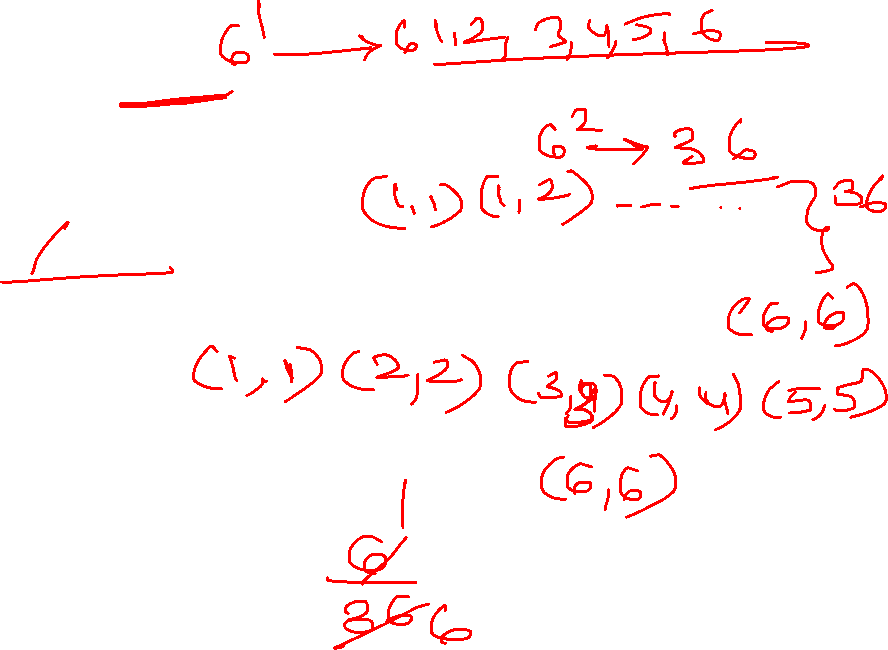 6¹ → 6 1,2, 3,4,5, 6
6² → 36
(1,1) (1,2) --- .. } 36
(6,6)
(1,1) (2,2) (3,3) (4,4) (5,5)
(6,6)
1
6
36 6